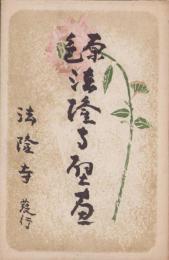 原色
法隆寺壁画
法隆寺
発行